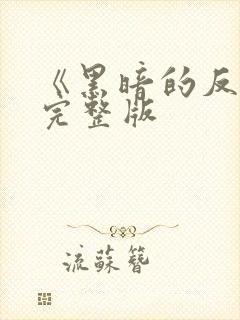 《黑暗的反
完整版
流蘇簪